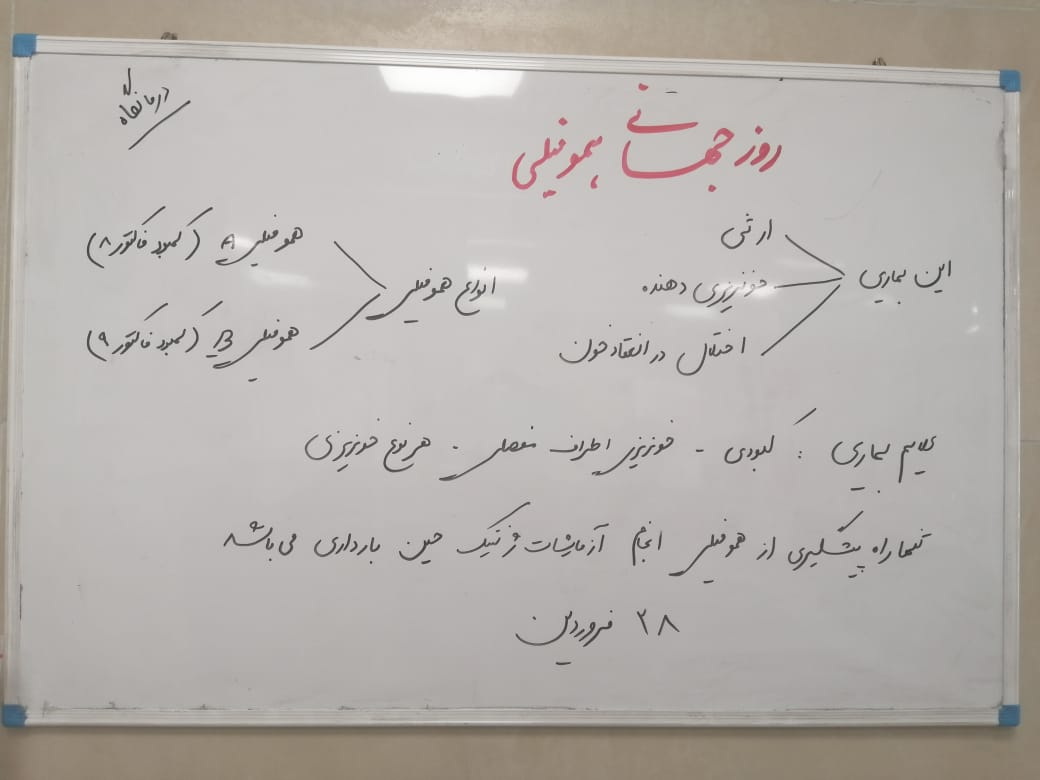 درمانگاه
روز جهانی هموفیلی
این بیماری
ارثی
خونریزی دهنده
اختلال در انعقاد خون
انواع هموفیلی
هموفیلی A (کمبود فاکتور ۸)
هموفیلی B (کمبود فاکتور ۹)
علایم بیماری : کبودی - خونریزی اطراف مفصلی - هر نوع خونریزی
تنها راه پیشگیری از هموفیلی انجام آزمایشات ژنتیک حین بارداری می باشد
۲۸ فروردین